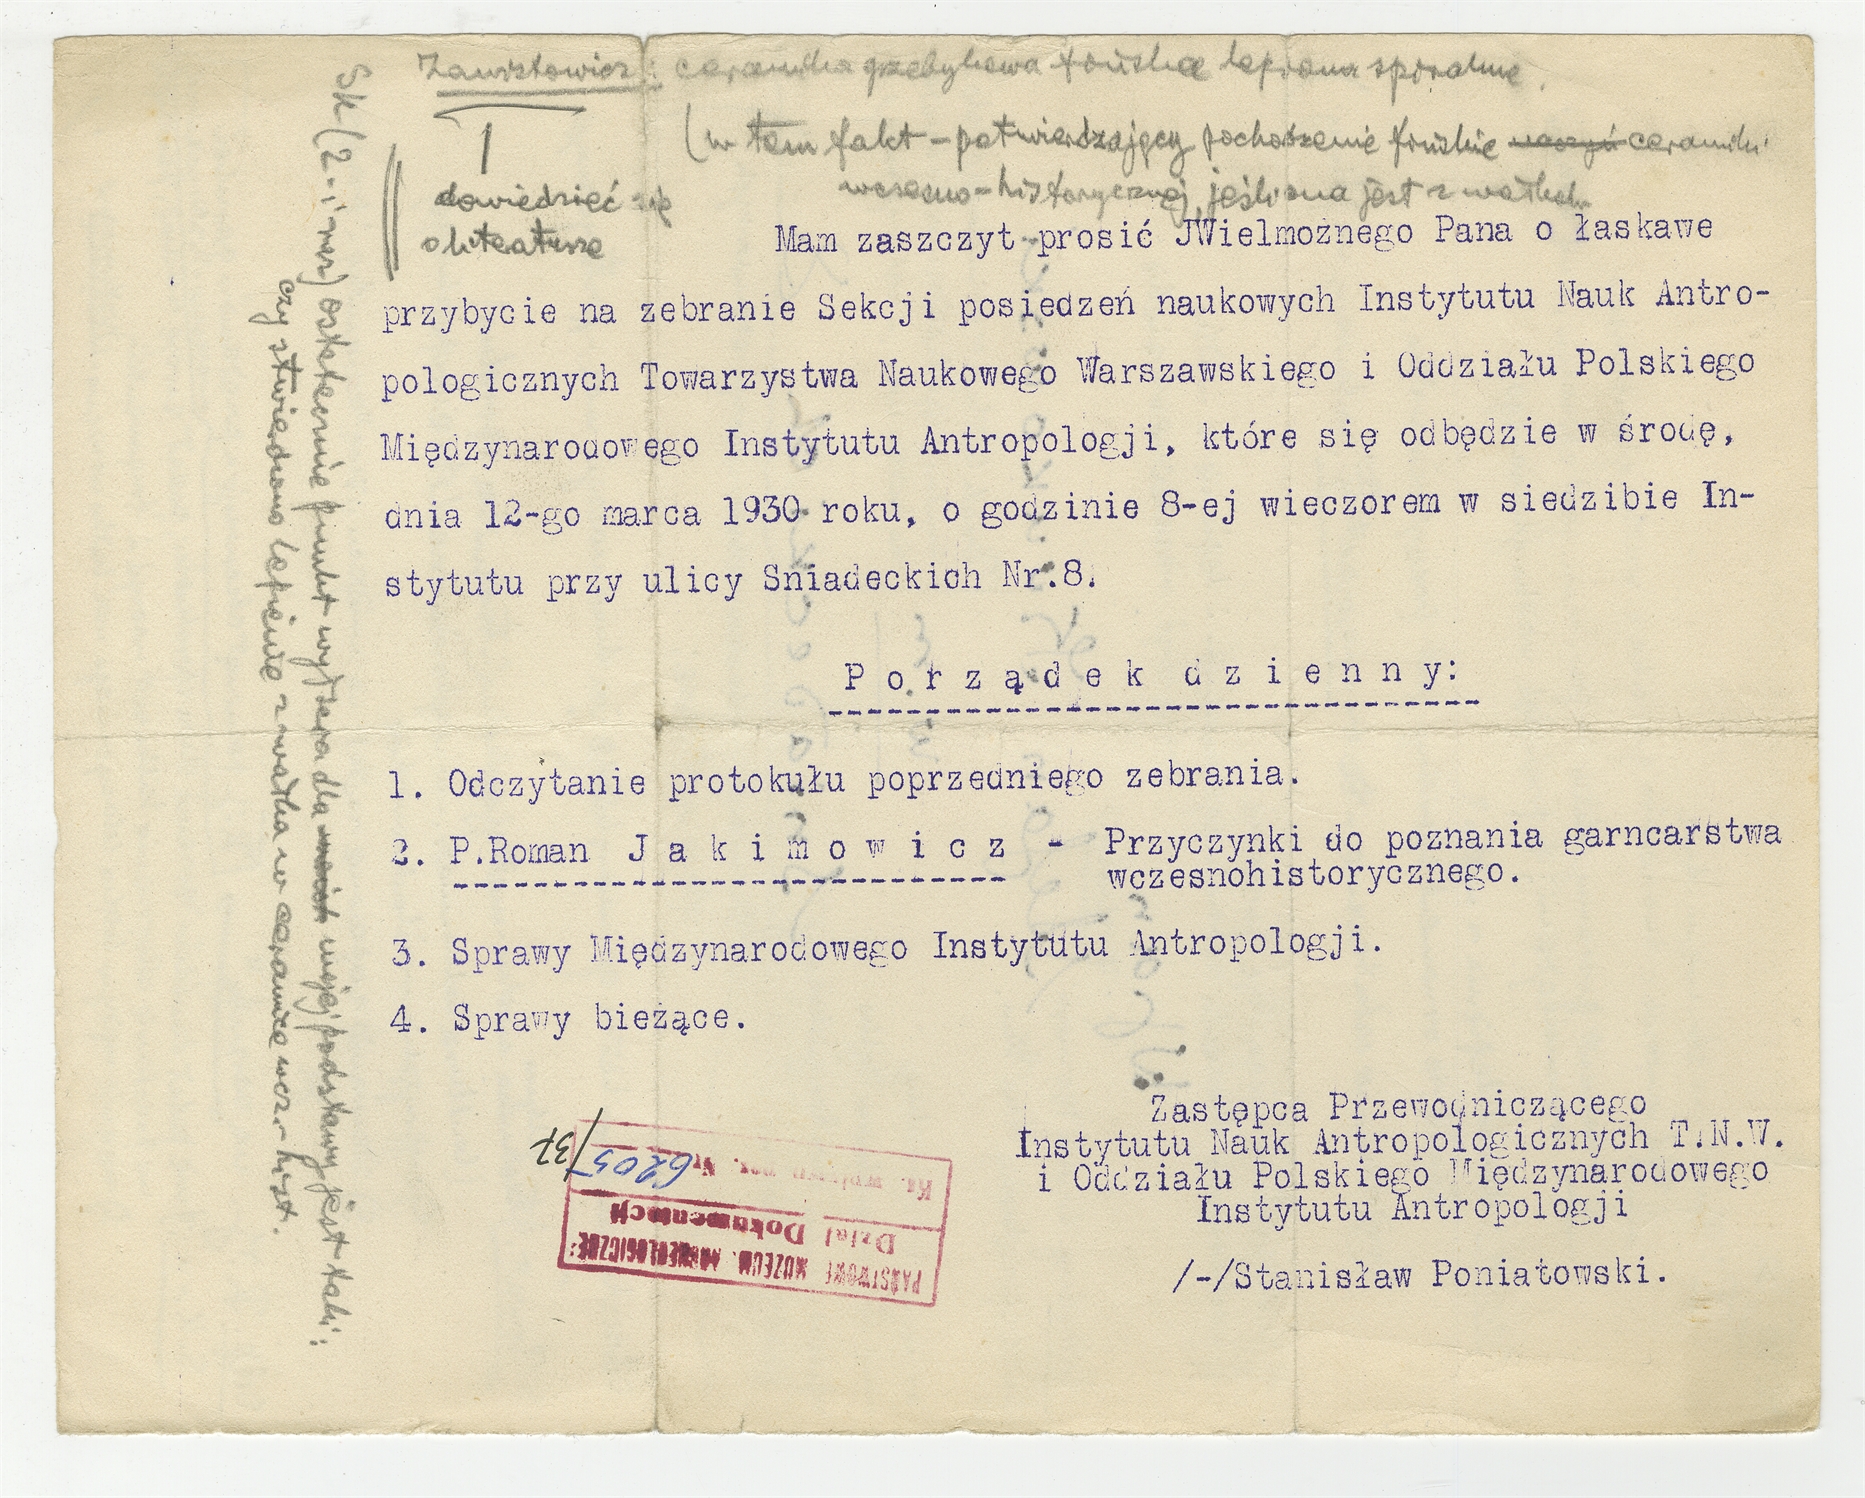 Zawistowicz: ceramika grzebykowa fińska lepiona spiralnie.
(w tem fakt - potwierdzający pochodzenie fińskie naczyń ceramiki
wczesno-historycznej, jeśli ona jest z wałków
dowiedzieć się
o literaturze
Mam zaszczyt prosić JWielmożnego Pana o łaskawe
przybycie na zebranie Sekcji posiedzeń naukowych Instytutu Nauk Antro-
pologicznych Towarzystwa Naukowego Warszawskiego i Oddziału Polskiego
Międzynarodowego Instytutu Antropologji, które się odbędzie w środę,
dnia 12-go marca 1930 roku, o godzinie 8-ej wieczorem w siedzibie In-
stytutu przy ulicy Sniadeckich Nr.8.
Porządek dzienny:
1. Odczytanie protokułu poprzedniego zebrania.
2. P.Roman Jakimowicz - Przyczynki do poznania garncarstwa
wczesnohistorycznego.
3. Sprawy Międzynarodowego Instytutu Antropologji.
4. Sprawy bieżące.
Zastępca Przewodniczącego
Instytutu Nauk Antropologicznych T.N.W.
i Oddziału Polskiego Międzynarodowego
Instytutu Antropologji
/-/Stanisław Poniatowski.
Sk (2-i raz) ostatecznie punkt wyjścia dla mojej podstawy jest taki:
czy stwierdzono lepienie z wałka w ceramice wcz.-hist.
PAŃSTWOWE MUZEUM ARCHEOLOGICZNE
Dział Dokumentacji
Ks. wpływu wez. Nr. 6205
/37